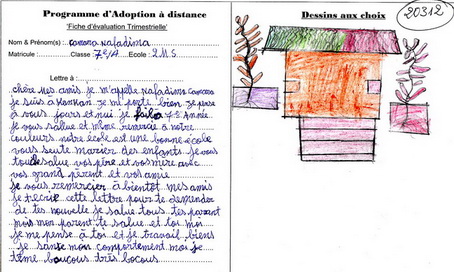 Programme d'Adoption à distance
'Fiche d'évaluation Trimestrielle'
Nom & Prénom(s): camara nafadima
Matricule: Classe 7e/A Ecole: 2MS
Lettre à:
chère Mes amis je m'appelle nafadima camara
je suis à Kankan je me porte bien je pense
à vous jours et nui je fais la 7e Année
je vous salue et même remercié à notre
couleurs notre école est une bonne école
vous seute marier des enfants je vous
tous salue vos père et vos mière avec
vos grand pèrent et vos amie
je vous remercier à bientôt mes amis
je t'écrie cette lettre pour te demander
de tes nouvelle je salue tous tes parent
mois mon parent te salue et toi moi
je me pense à toi et je travail biens
je sante mon comportement moi je
tème boucous très bocous
Dessins aux choix
20312